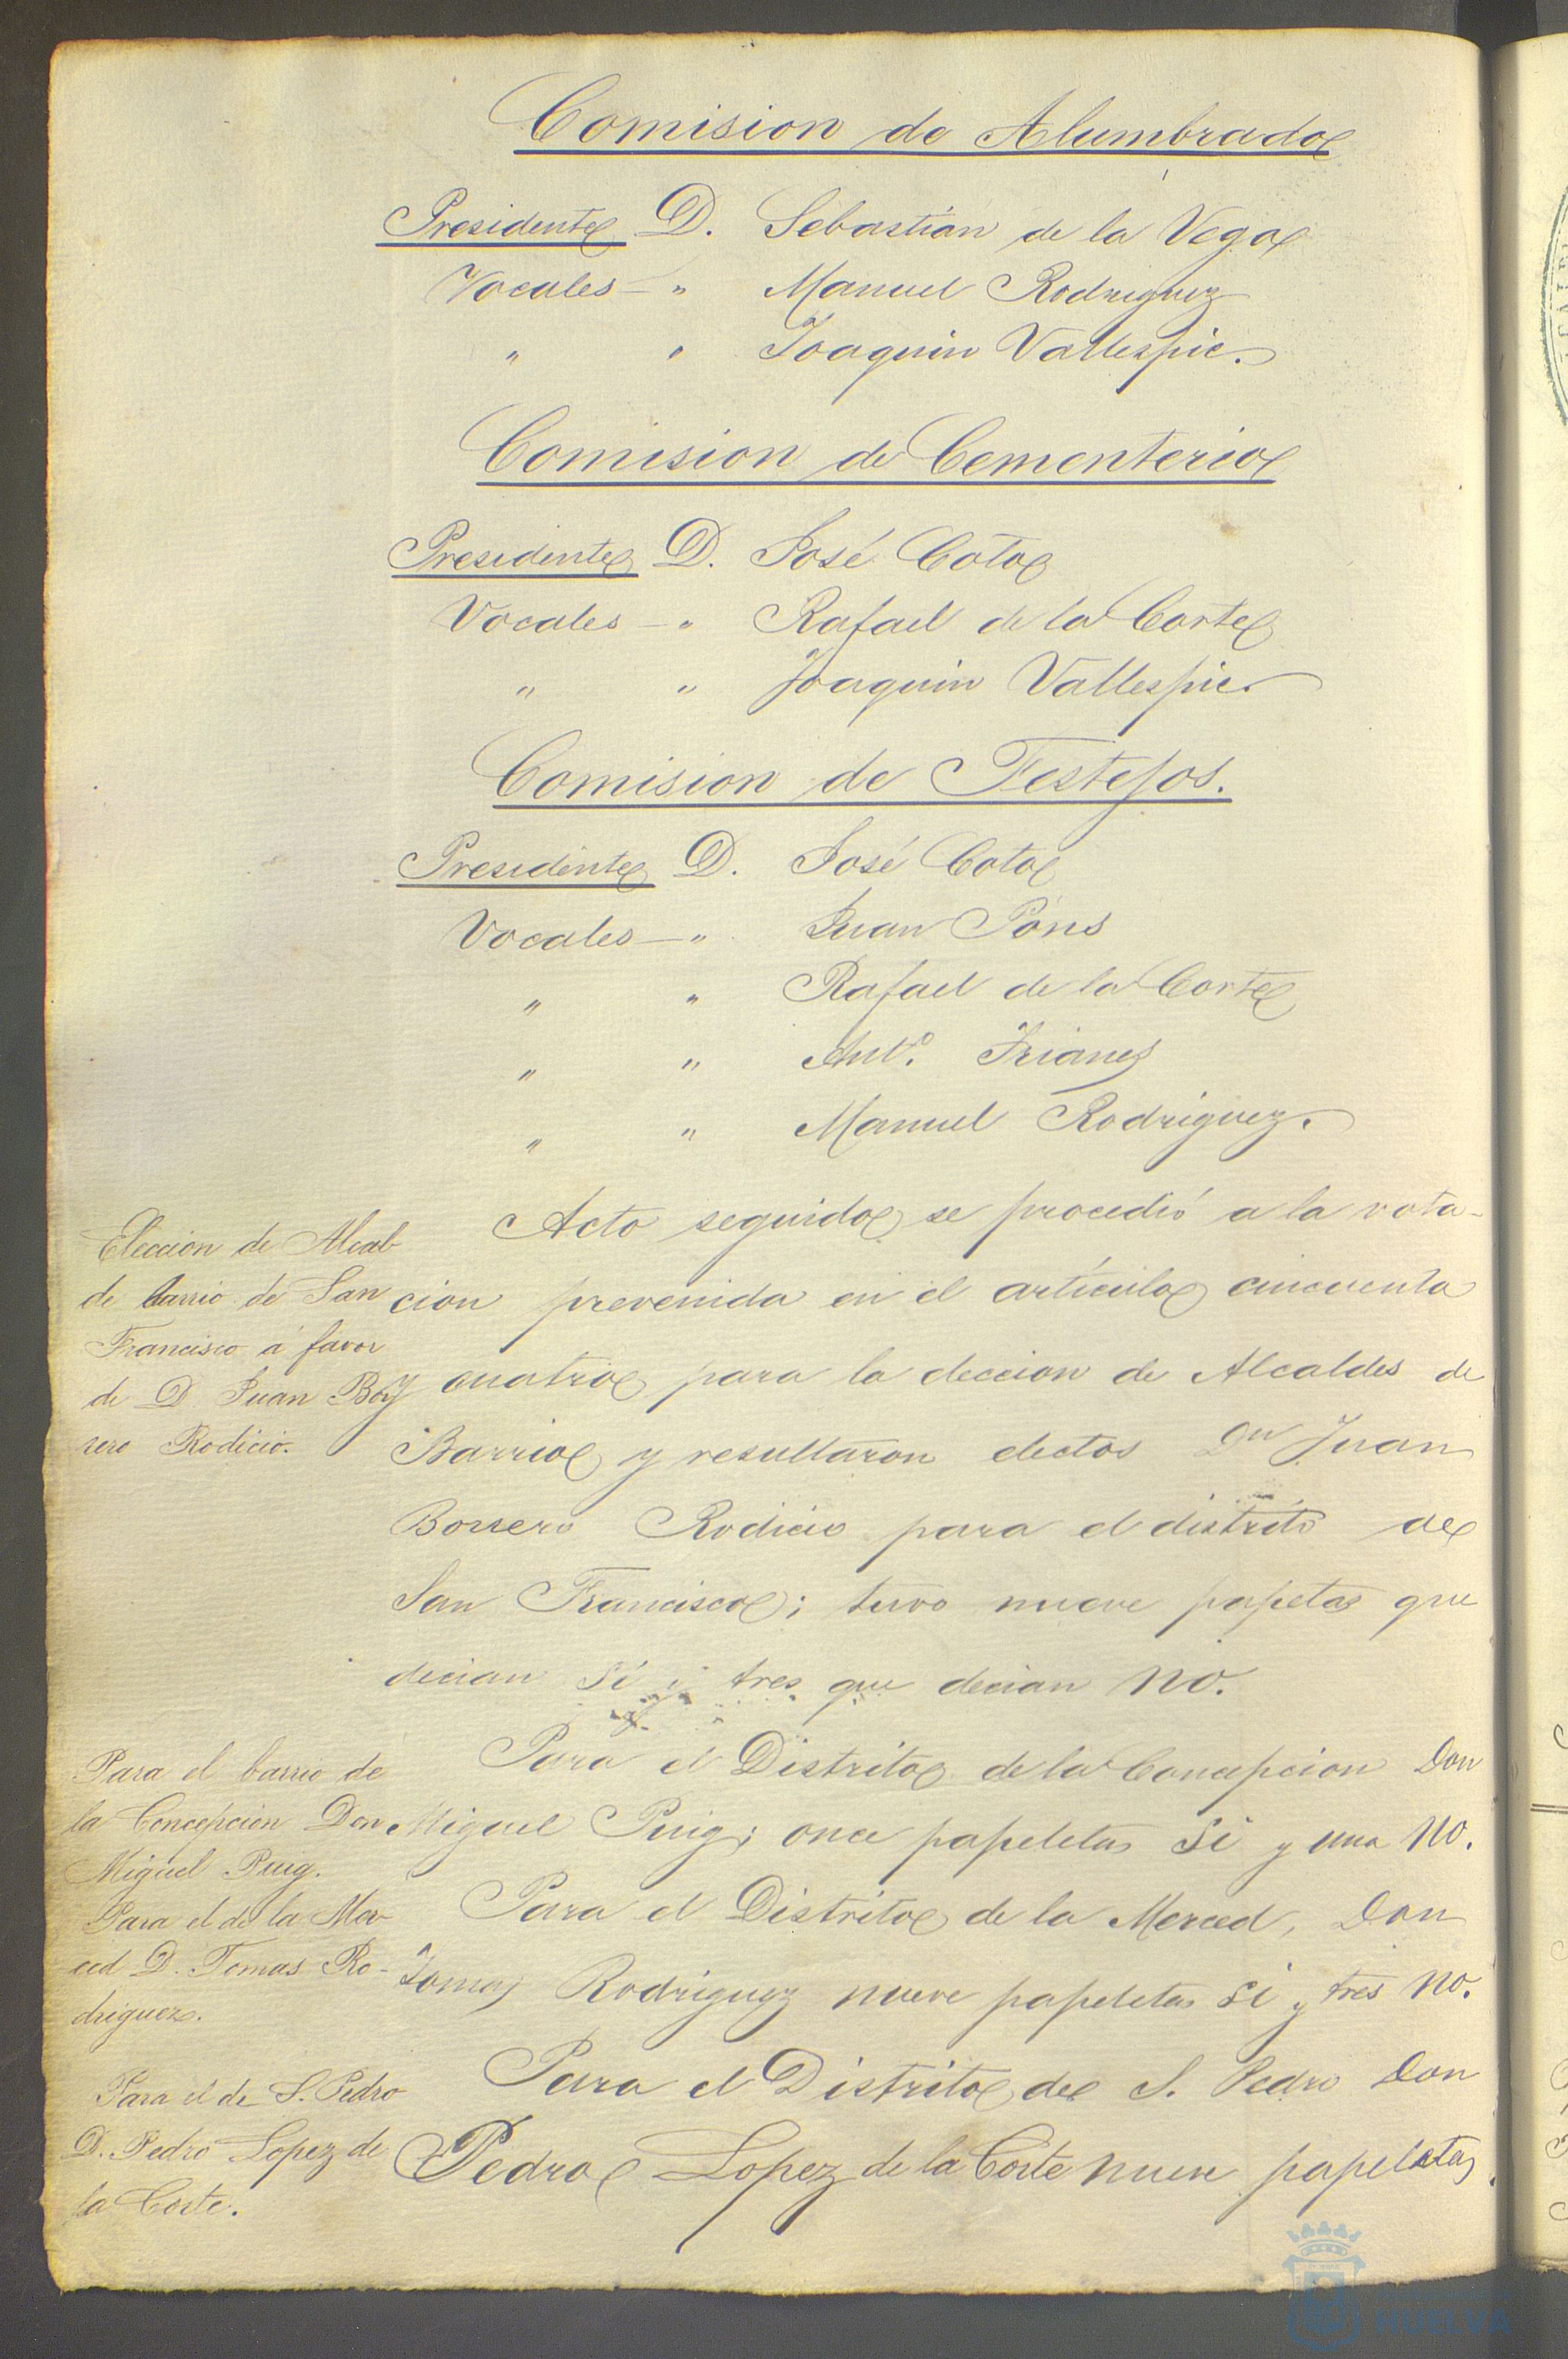 Comision de Alumbrado
Presidente D. Sebastián de la Vega
Vocales — " Manuel Rodriguez
" " Joaquin Vallespir.
Comision de Cementerio
Presidente D. José Coto
Vocales — " Rafael de la Corte
" " Joaquin Vallespir.
Comision de Festejos.
Presidente D. José Coto
Vocales — " Juan Pons
" " Rafael de la Corte
" " Antº. Trianes
" " Manuel Rodriguez.
Acto seguido se procedió a la vota-
cion prevenida en el artículo cincuenta
cuatro para la eleccion de Alcaldes de
Barrio y resultaron electos Dn Juan
Borrero Rodicio para el distrito de
San Francisco; tuvo nueve papetas que
decian Si y tres que decian No.
Para el Distrito de la Concepcion Don
Miguel Puig; once papeletas Si y una No.
Para el Distrito de la Merced, Don
Tomas Rodriguez nueve papeletas Si y tres No.
Para el Distrito de S. Pedro Don
Pedro Lopez de la Corte nueve papeletas
Eleccion de Alcal
de barrio de San
Francisco á favor
de D Juan Bor
rero Rodicio.
Para el barrio de
la Concepcion Don
Miguel Puig.
Para el de la Mer-
ced D. Tomas Ro-
driguez.
Para el de S. Pedro
D. Pedro Lopez de
la Corte.
HUELVA